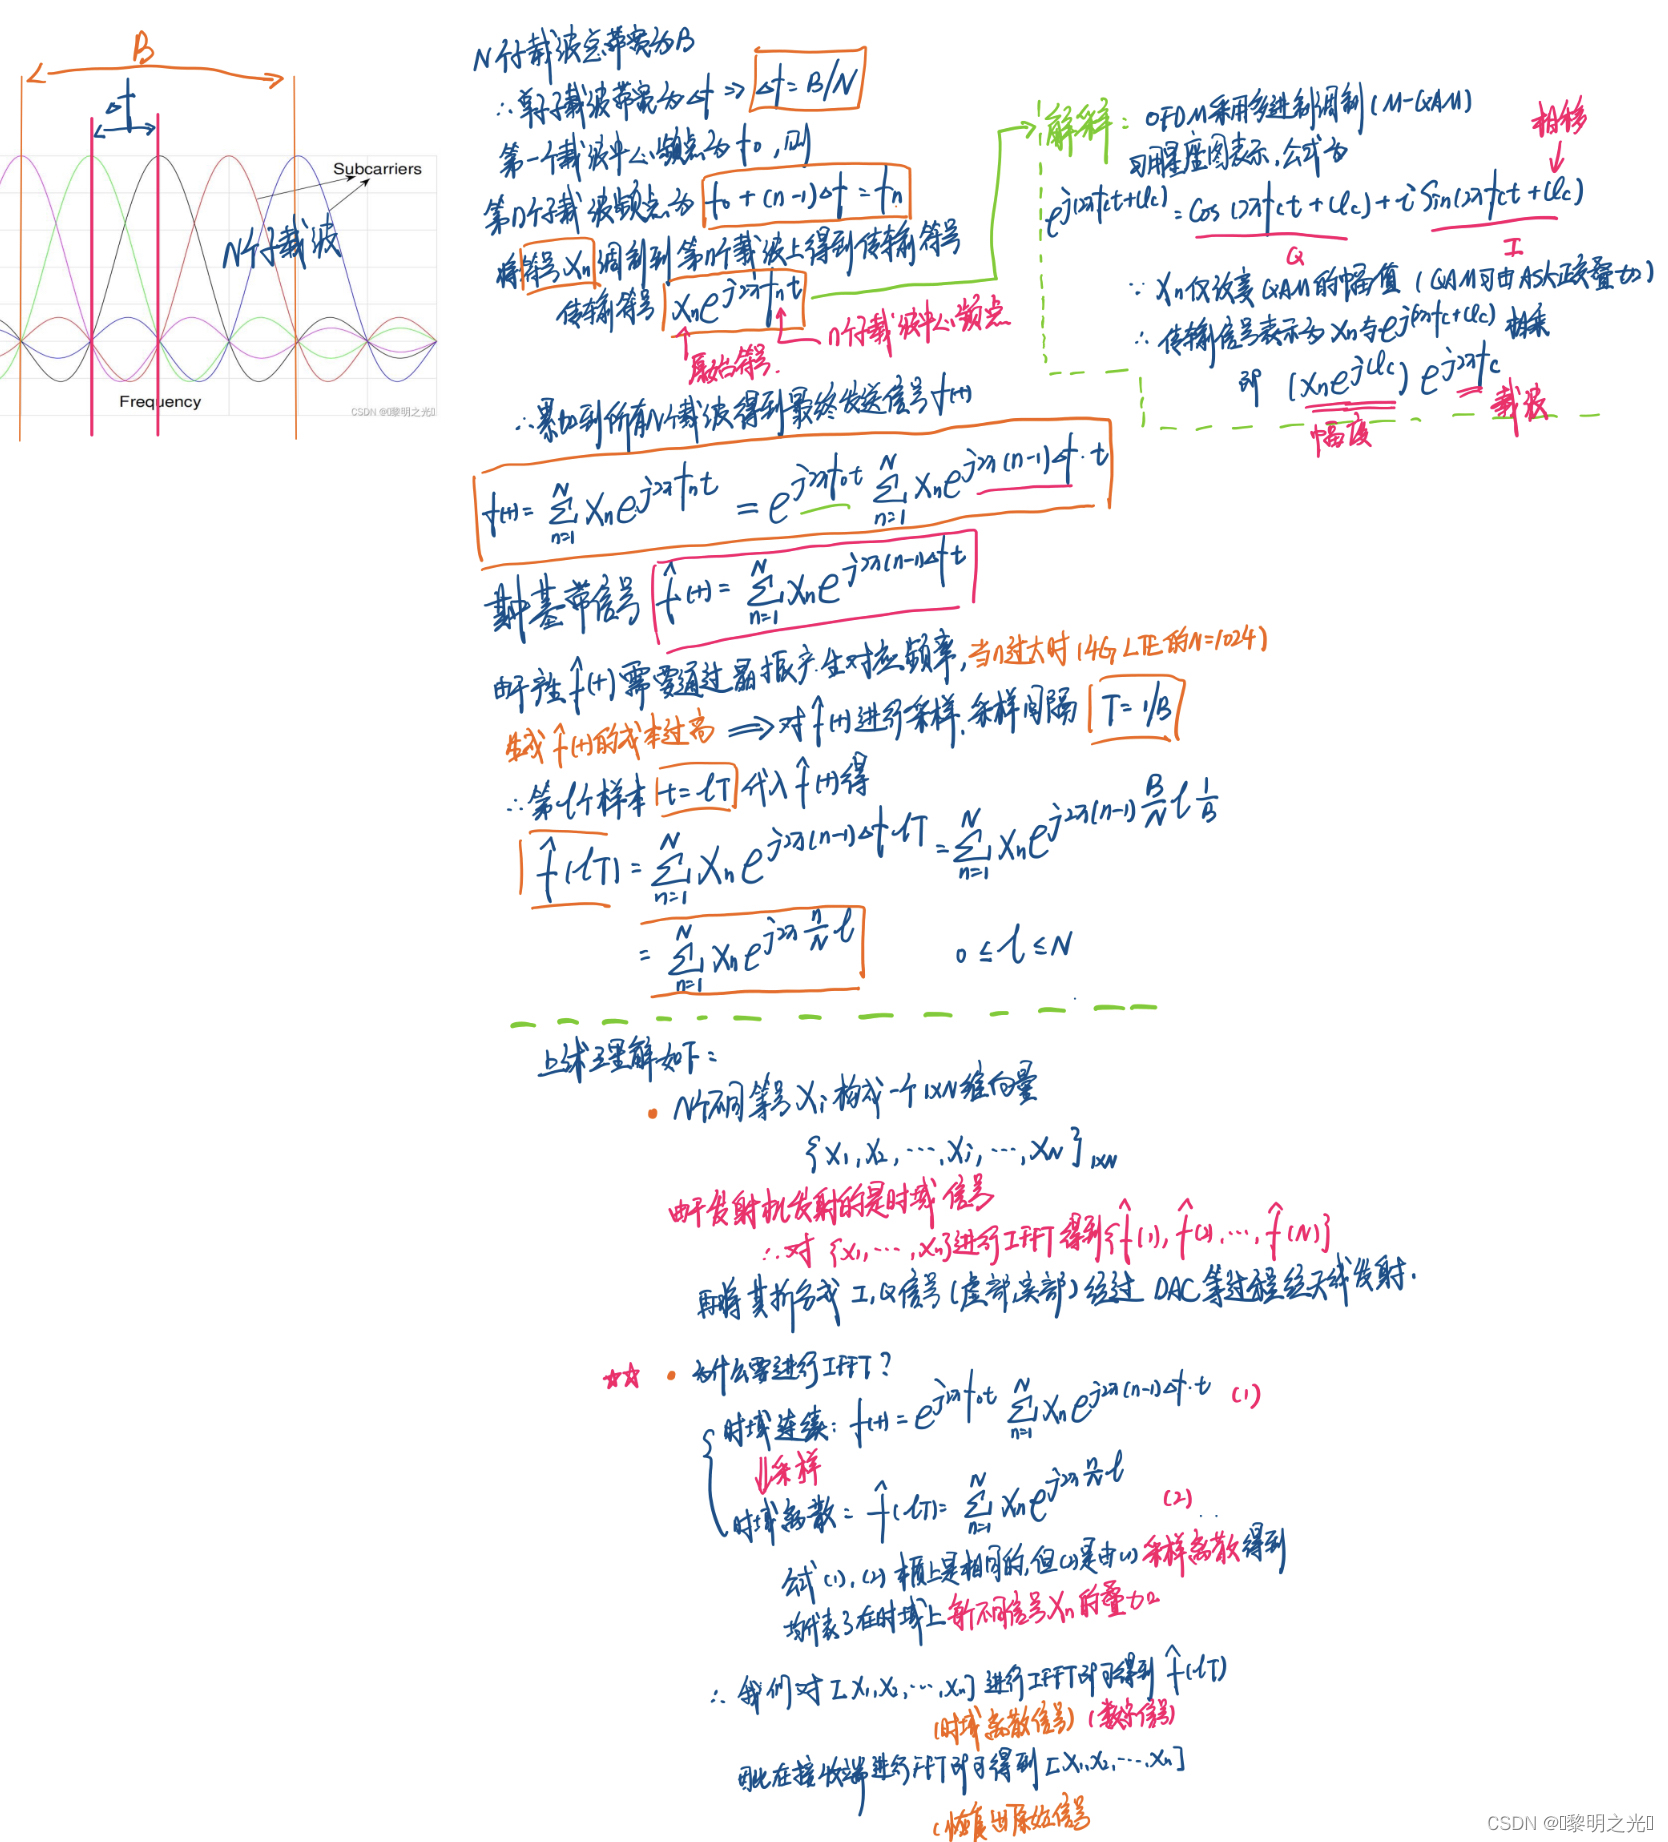 B
Δf
Subcarriers
N个子载波
Frequency
CSDN @黎明之光
N个子载波总带宽为B
∴单子载波带宽为Δf ⇒ Δf = B/N
第一个载波中心频点为f₀,则
第n个子载波频点为 f₀ + (n-1)Δf = fn
将符号Xn调制到第n个载波上得到传输符号
传输符号 Xn e^{j2πfnt}
n个子载波中心频点
原始符号.
解释: OFDM采用多进制调制(M-QAM)
可用星座图表示,公式为
相移
e^{j(2πfct+φc)} = Cos(2πfct+φc) + i Sin(2πfct+φc)
Q I
∵ Xn仅改变QAM的幅值 (QAM可由ASK正交叠加)
∴ 传输信号表示为Xn与e^{j(2πfc+φc)}相乘
即 (Xn e^{jφc}) e^{j2πfc}
幅度 载波
∴累加到所有N个载波得到最终发送信号f(t)
f(t) = Σ_{n=1}^{N} Xn e^{j2πfnt} = e^{j2πf₀t} Σ_{n=1}^{N} Xn e^{j2π(n-1)Δf·t}
其中基带信号 f̂(t) = Σ_{n=1}^{N} Xn e^{j2π(n-1)Δft}
由于产生f̂(t)需要通过晶振产生对应频率,当n过大时(4G,LTE的N=1024)
生成f̂(t)的成本过高 ⇒对f̂(t)进行采样,采样间隔 T=1/B
∴第l个样本 t=lT 代入f̂(t)得
f̂(lT) = Σ_{n=1}^{N} Xn e^{j2π(n-1)Δf·lT} = Σ_{n=1}^{N} Xn e^{j2π(n-1)\frac{B}{N}l\frac{1}{B}}
= Σ_{n=1}^{N} Xn e^{j2π\frac{n}{N}l} 0 ≤ l ≤ N
上述理解如下:
• N个不同符号Xi构成一个1×N维向量
{X₁,X₂,…,Xi,…,XN}1×N
由于发射机发射的是时域信号
∴对{X₁,…,Xn}进行IFFT得到{f̂(1),f̂(2),…,f̂(N)}
再将其拆分成I,Q信号(虚部实部)经过DAC等过程经天线发射.
☆☆ • 为什么要进行IFFT?
时域连续: f(t) = e^{j2πf₀t} Σ_{n=1}^{N} Xn e^{j2π(n-1)Δf·t} (1)
⇓采样
时域离散: f̂(lT) = Σ_{n=1}^{N} Xn e^{j2π\frac{n}{N}l} (2)
公式(1),(2)本质上是相同的,但(2)是由(1)采样离散得到
均代表了在时域上每个不同信号Xn的叠加
∴ 我们对[X₁,X₂,…,Xn]进行IFFT即可得到f̂(lT)
(时域离散信号) (数字信号)
因此在接收端进行FFT即可得到[X₁,X₂,…,Xn]
(恢复出原始信号
CSDN @黎明之光